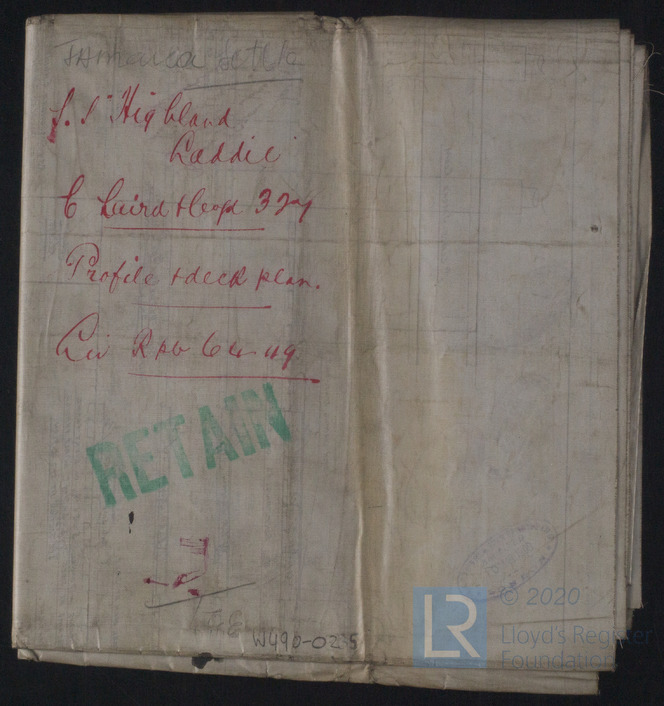 Jamaica Settler
S.S. Highland
Laddie
C Laird & Coys 327
Profile & deck plan.
Liv Rpt 64
RETAIN
W490-0235
LR © 2020
Lloyd's Register
Foundation